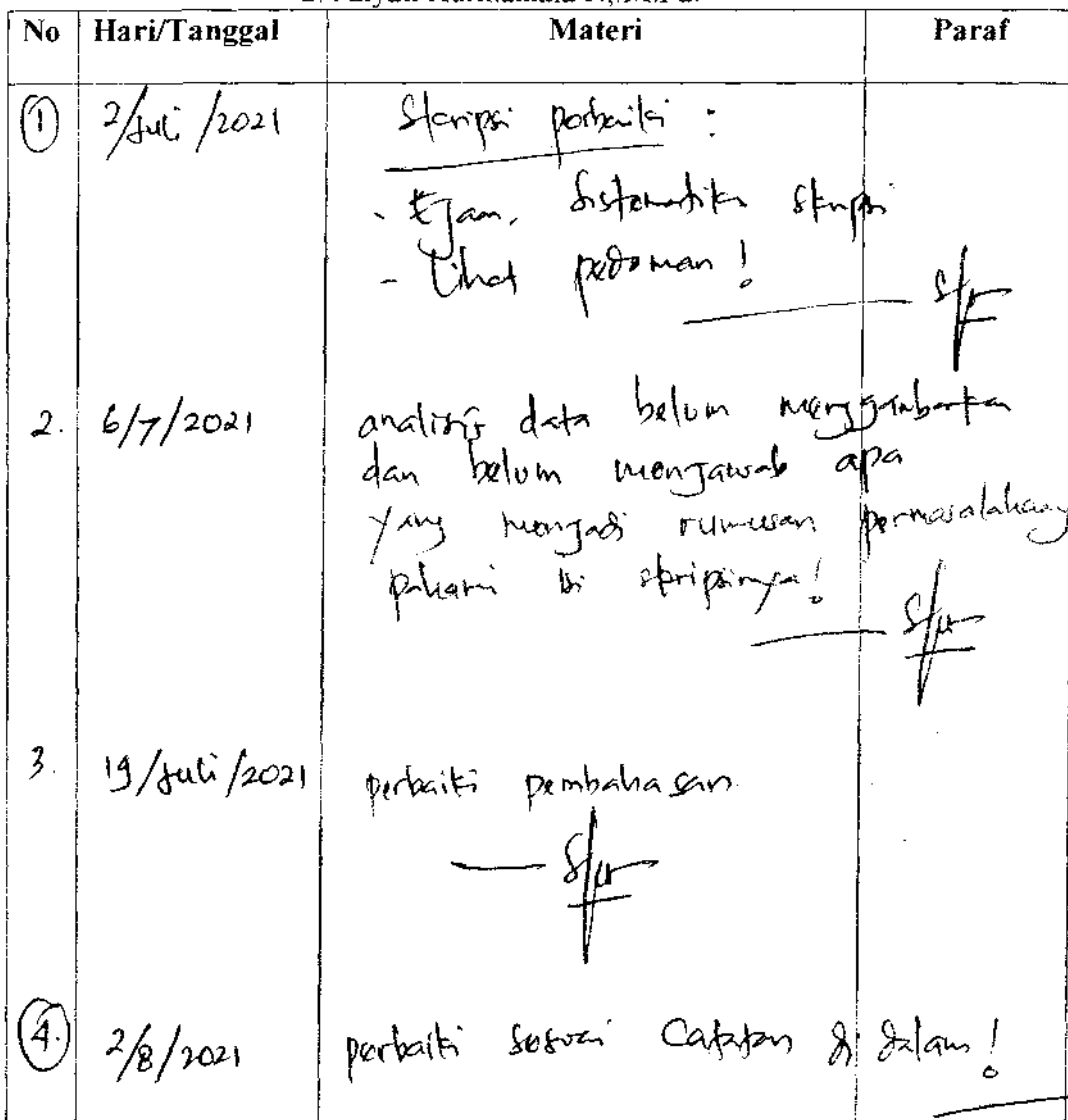 No Hari/Tanggal Materi Paraf
1 2/Juli/2021 Skripsi perbaiki :
- Ejaan, Sistematika skripsi
- Lihat pedoman !
2. 6/7/2021 analisis data belum menggambarkan
dan belum menjawab apa
yang menjadi rumusan permasalahan,
pahami isi skripsinya !
3. 19/Juli/2021 perbaiki pembahasan
4. 2/8/2021 perbaiki sesuai Catatan di dalam !